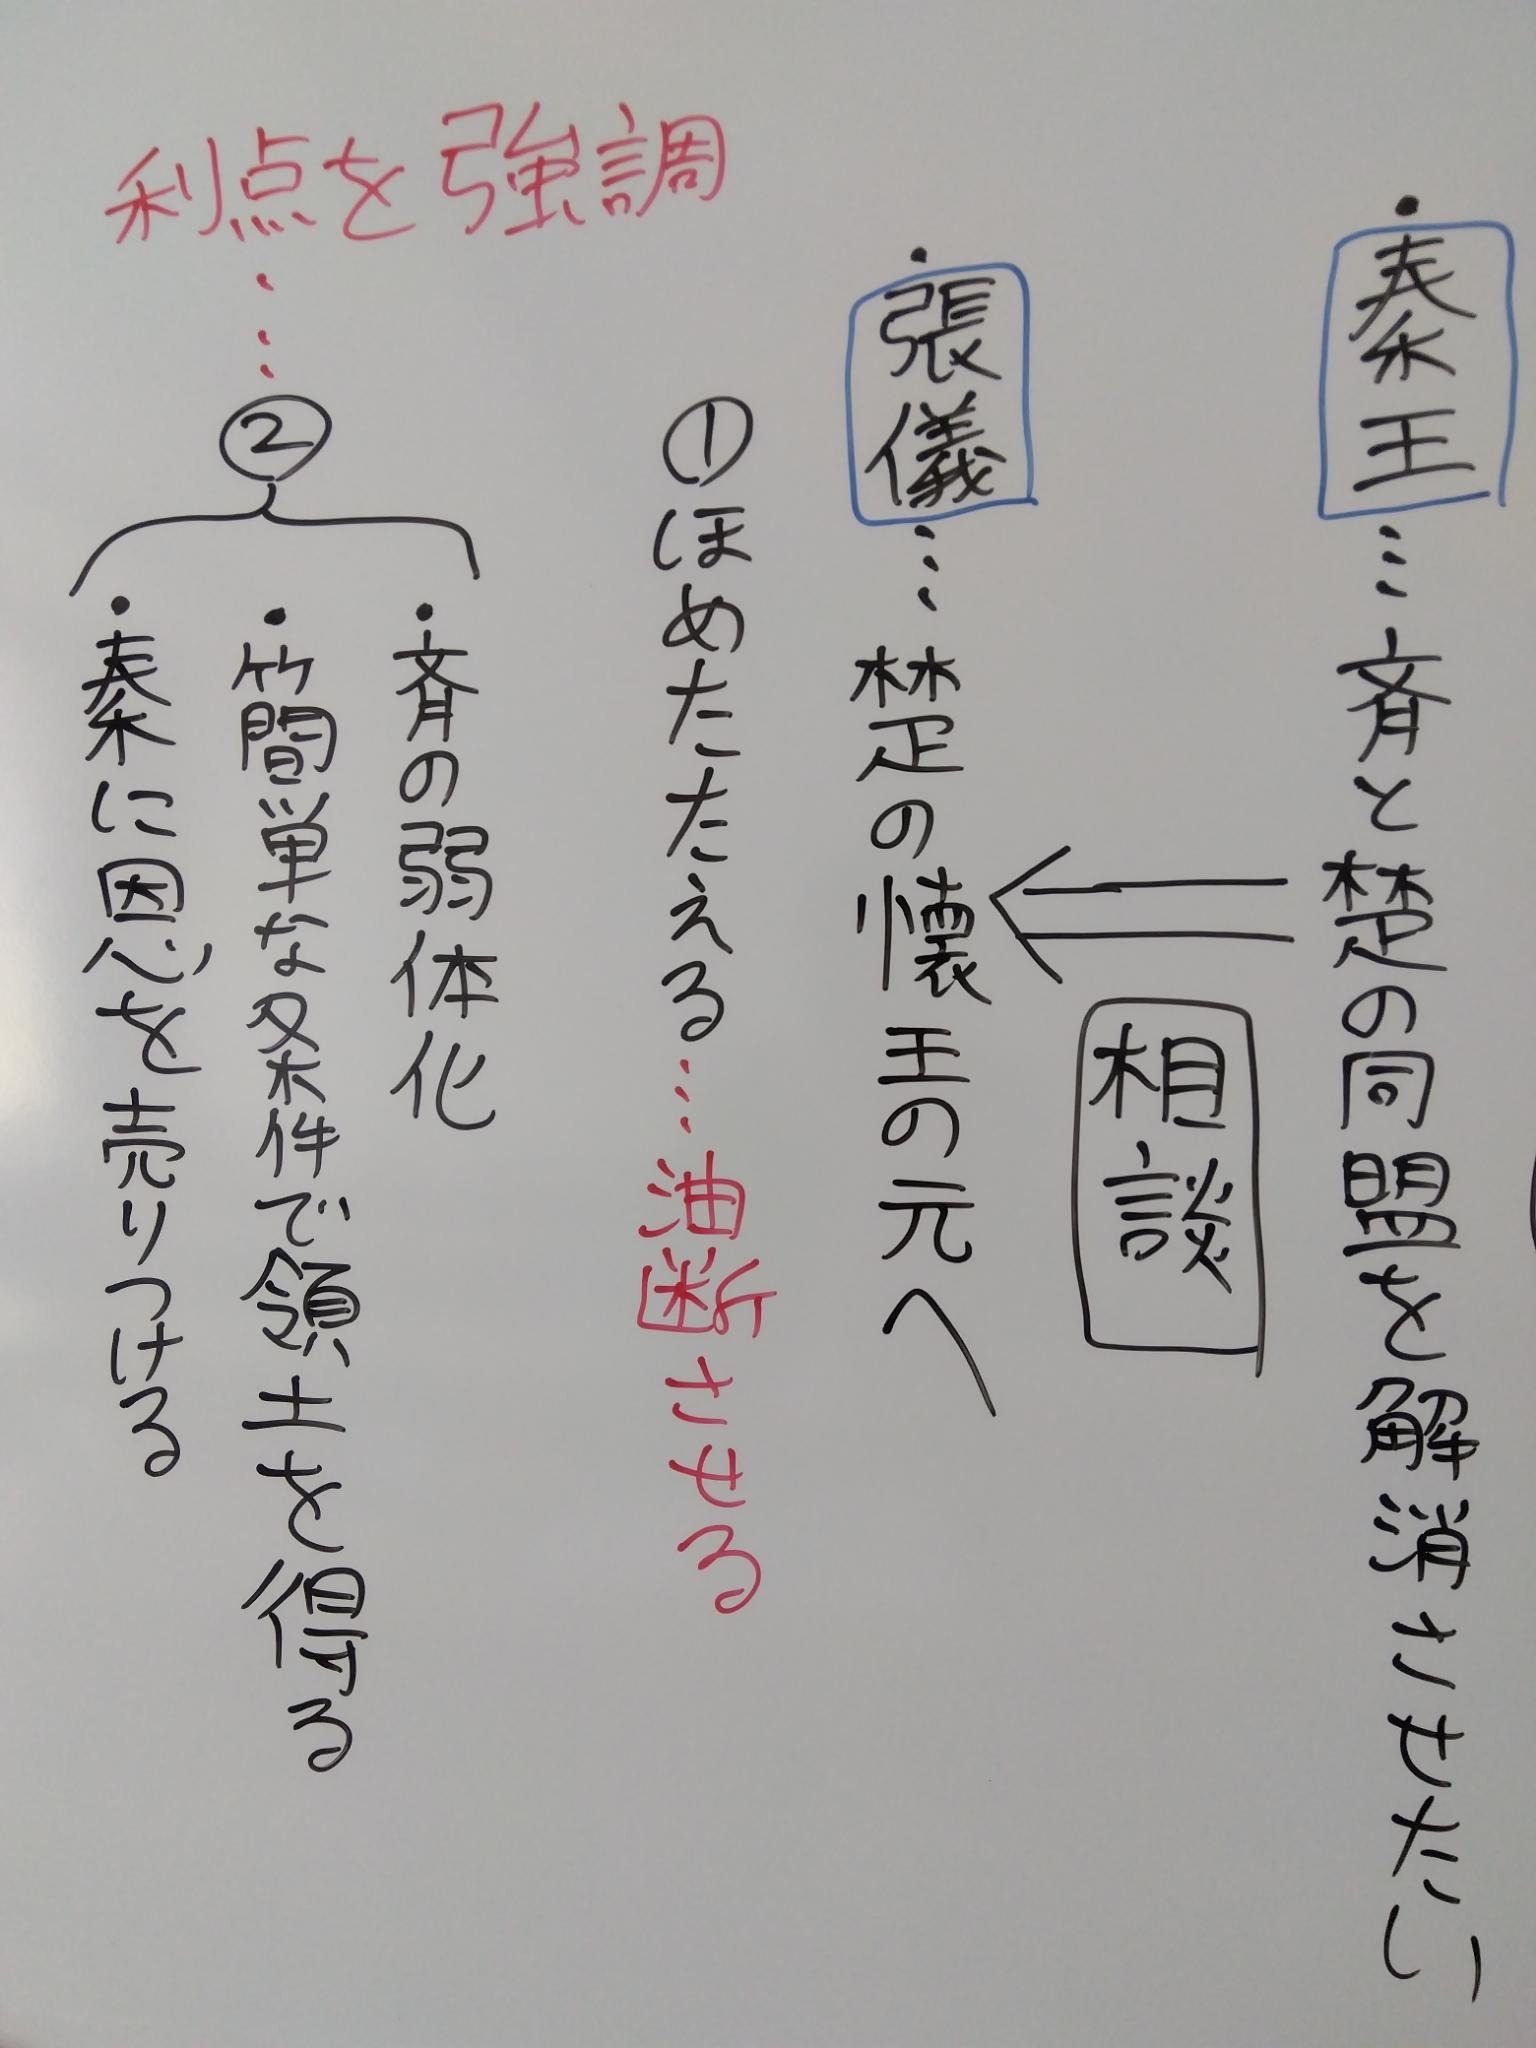 ・秦王…斉と楚の同盟を解消させたい
相談
・張儀…楚の懐王の元へ
①ほめたたえる…油断させる
利点を強調
…②
・斉の弱体化
・簡単な条件で領土を得る
・秦に恩を売りつける